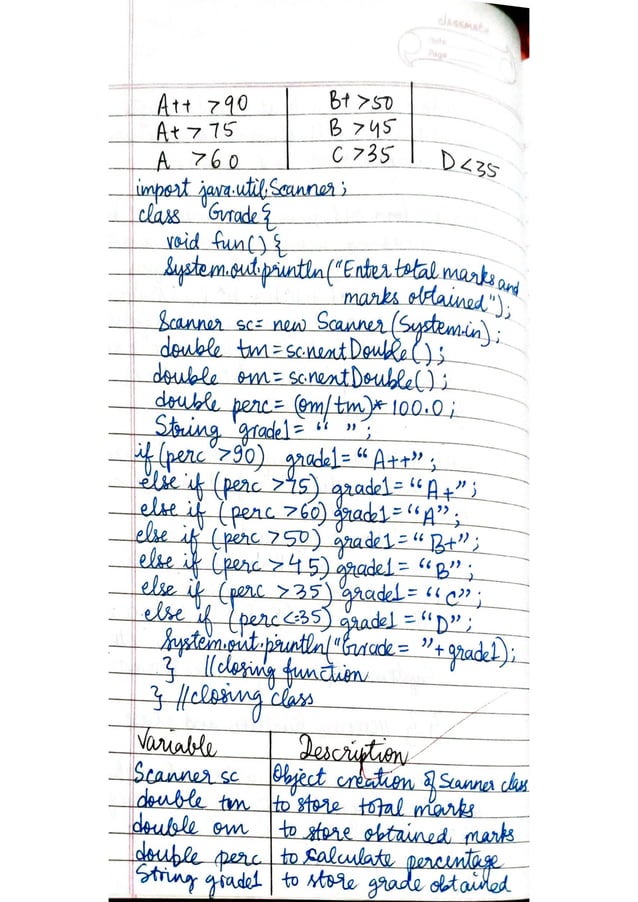 classmate
Date
Page
A++ >90 B+ >50
A+ > 75 B >45
A >60 C >35 D<35
import java.util.Scanner;
class Grade{
void fun() {
System.out.println("Enter total marks and
marks obtained");
Scanner sc= new Scanner(System.in);
double tm=sc.nextDouble();
double om=sc.nextDouble();
double perc= (om/tm)* 100.0;
String grade1= " ";
if (perc >90) grade1= "A++";
else if (perc >75) grade1="A+";
else if (perc >60) grade1="A";
else if (perc >50) grade1="B+";
else if (perc >45) grade1= "B";
else if (perc >35) grade1= "C";
else if (perc<=35) grade1 = "D";
System.out.println("Grade= "+grade1);
} //closing function
} //closing class
Variable Description
Scanner sc Object creation of Scanner class
double tm to store total marks
double om to store obtained marks
double perc to calculate percentage
String grade1 to store grade obtained